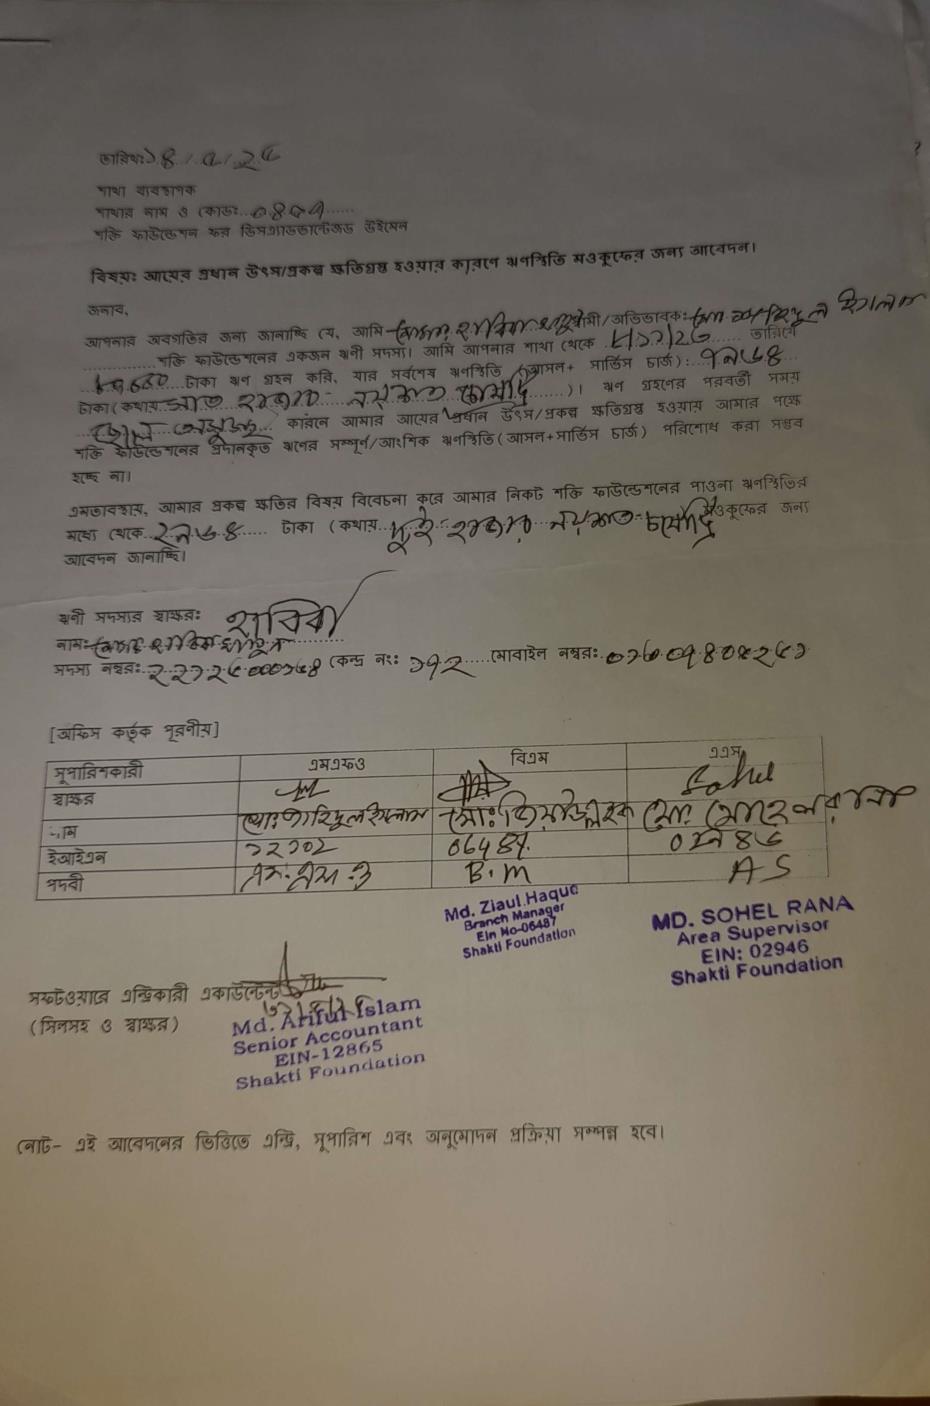 তারিখঃ ১৪/৫/২৫
শাখা ব্যবস্থাপক
শাখার নাম ও কোডঃ ০৪৫৭
শক্তি ফাউন্ডেশন ফর ডিসএ্যাডভান্টেজড উইমেন
বিষয়ঃ আয়ের প্রধান উৎস/প্রকল্প ক্ষতিগ্রস্ত হওয়ার কারণে ঋণস্থিতি মওকুফের জন্য আবেদন।
জনাব,
আপনার অবগতির জন্য জানাচ্ছি যে, আমি স্বামী/অভিভাবকঃ ইসলাম
শক্তি ফাউন্ডেশনের একজন ঋনী সদস্য। আমি আপনার শাখা থেকে তারিখে
টাকা ঋণ গ্রহন করি, যার সর্বশেষ ঋণস্থিতি (আসল+ সার্ভিস চার্জ): ৭৯৬৪
টাকা (কথায় সাত হাজার নয়শত চৌষট্টি)। ঋণ গ্রহণের পরবর্তী সময়
কারনে আমার আয়ের প্রধান উৎস/প্রকল্প ক্ষতিগ্রস্ত হওয়ায় আমার পক্ষে
শক্তি ফাউন্ডেশনের প্রদানকৃত ঋনের সম্পূর্ন/আংশিক ঋণস্থিতি (আসল+সার্ভিস চার্জ) পরিশোধ করা সম্ভব
হচ্ছে না।
এমতাবস্থায়, আমার প্রকল্প ক্ষতির বিষয় বিবেচনা করে আমার নিকট শক্তি ফাউন্ডেশনের পাওনা ঋণস্থিতির
মধ্যে থেকে ২৯৬৪ টাকা (কথায় দুই হাজার নয়শত চৌষট্টি মওকুফের জন্য
আবেদন জানাচ্ছি।
ঋনী সদস্যর স্বাক্ষরঃ
নামঃ
সদস্য নম্বরঃ কেন্দ্র নংঃ ১৭২ মোবাইল নম্বরঃ
[অফিস কর্তৃক পূরণীয়]
সুপারিশকারী এমএফও বিএম এএস
স্বাক্ষর Sohel
নাম মোঃ জিয়াউল হক মোঃ সোহেল রানা
ইআইএন ১২১০২ 06487 ০২৯৪৬
পদবী এম.এফ.ও B.M A S
Md. Ziaul Haque
Branch Manager
Ein No-06487
Shakti Foundation
MD. SOHEL RANA
Area Supervisor
EIN: 02946
Shakti Foundation
সফটওয়ারে এন্ট্রিকারী একাউন্টেন্ট
(সিলসহ ও স্বাক্ষর)
Md. Ariful Islam
Senior Accountant
EIN-12865
Shakti Foundation
নোট- এই আবেদনের ভিত্তিতে এন্ট্রি, সুপারিশ এবং অনুমোদন প্রক্রিয়া সম্পন্ন হবে।